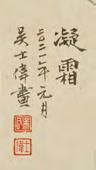 凝霜
二〇二一年元月
吴士偉畫